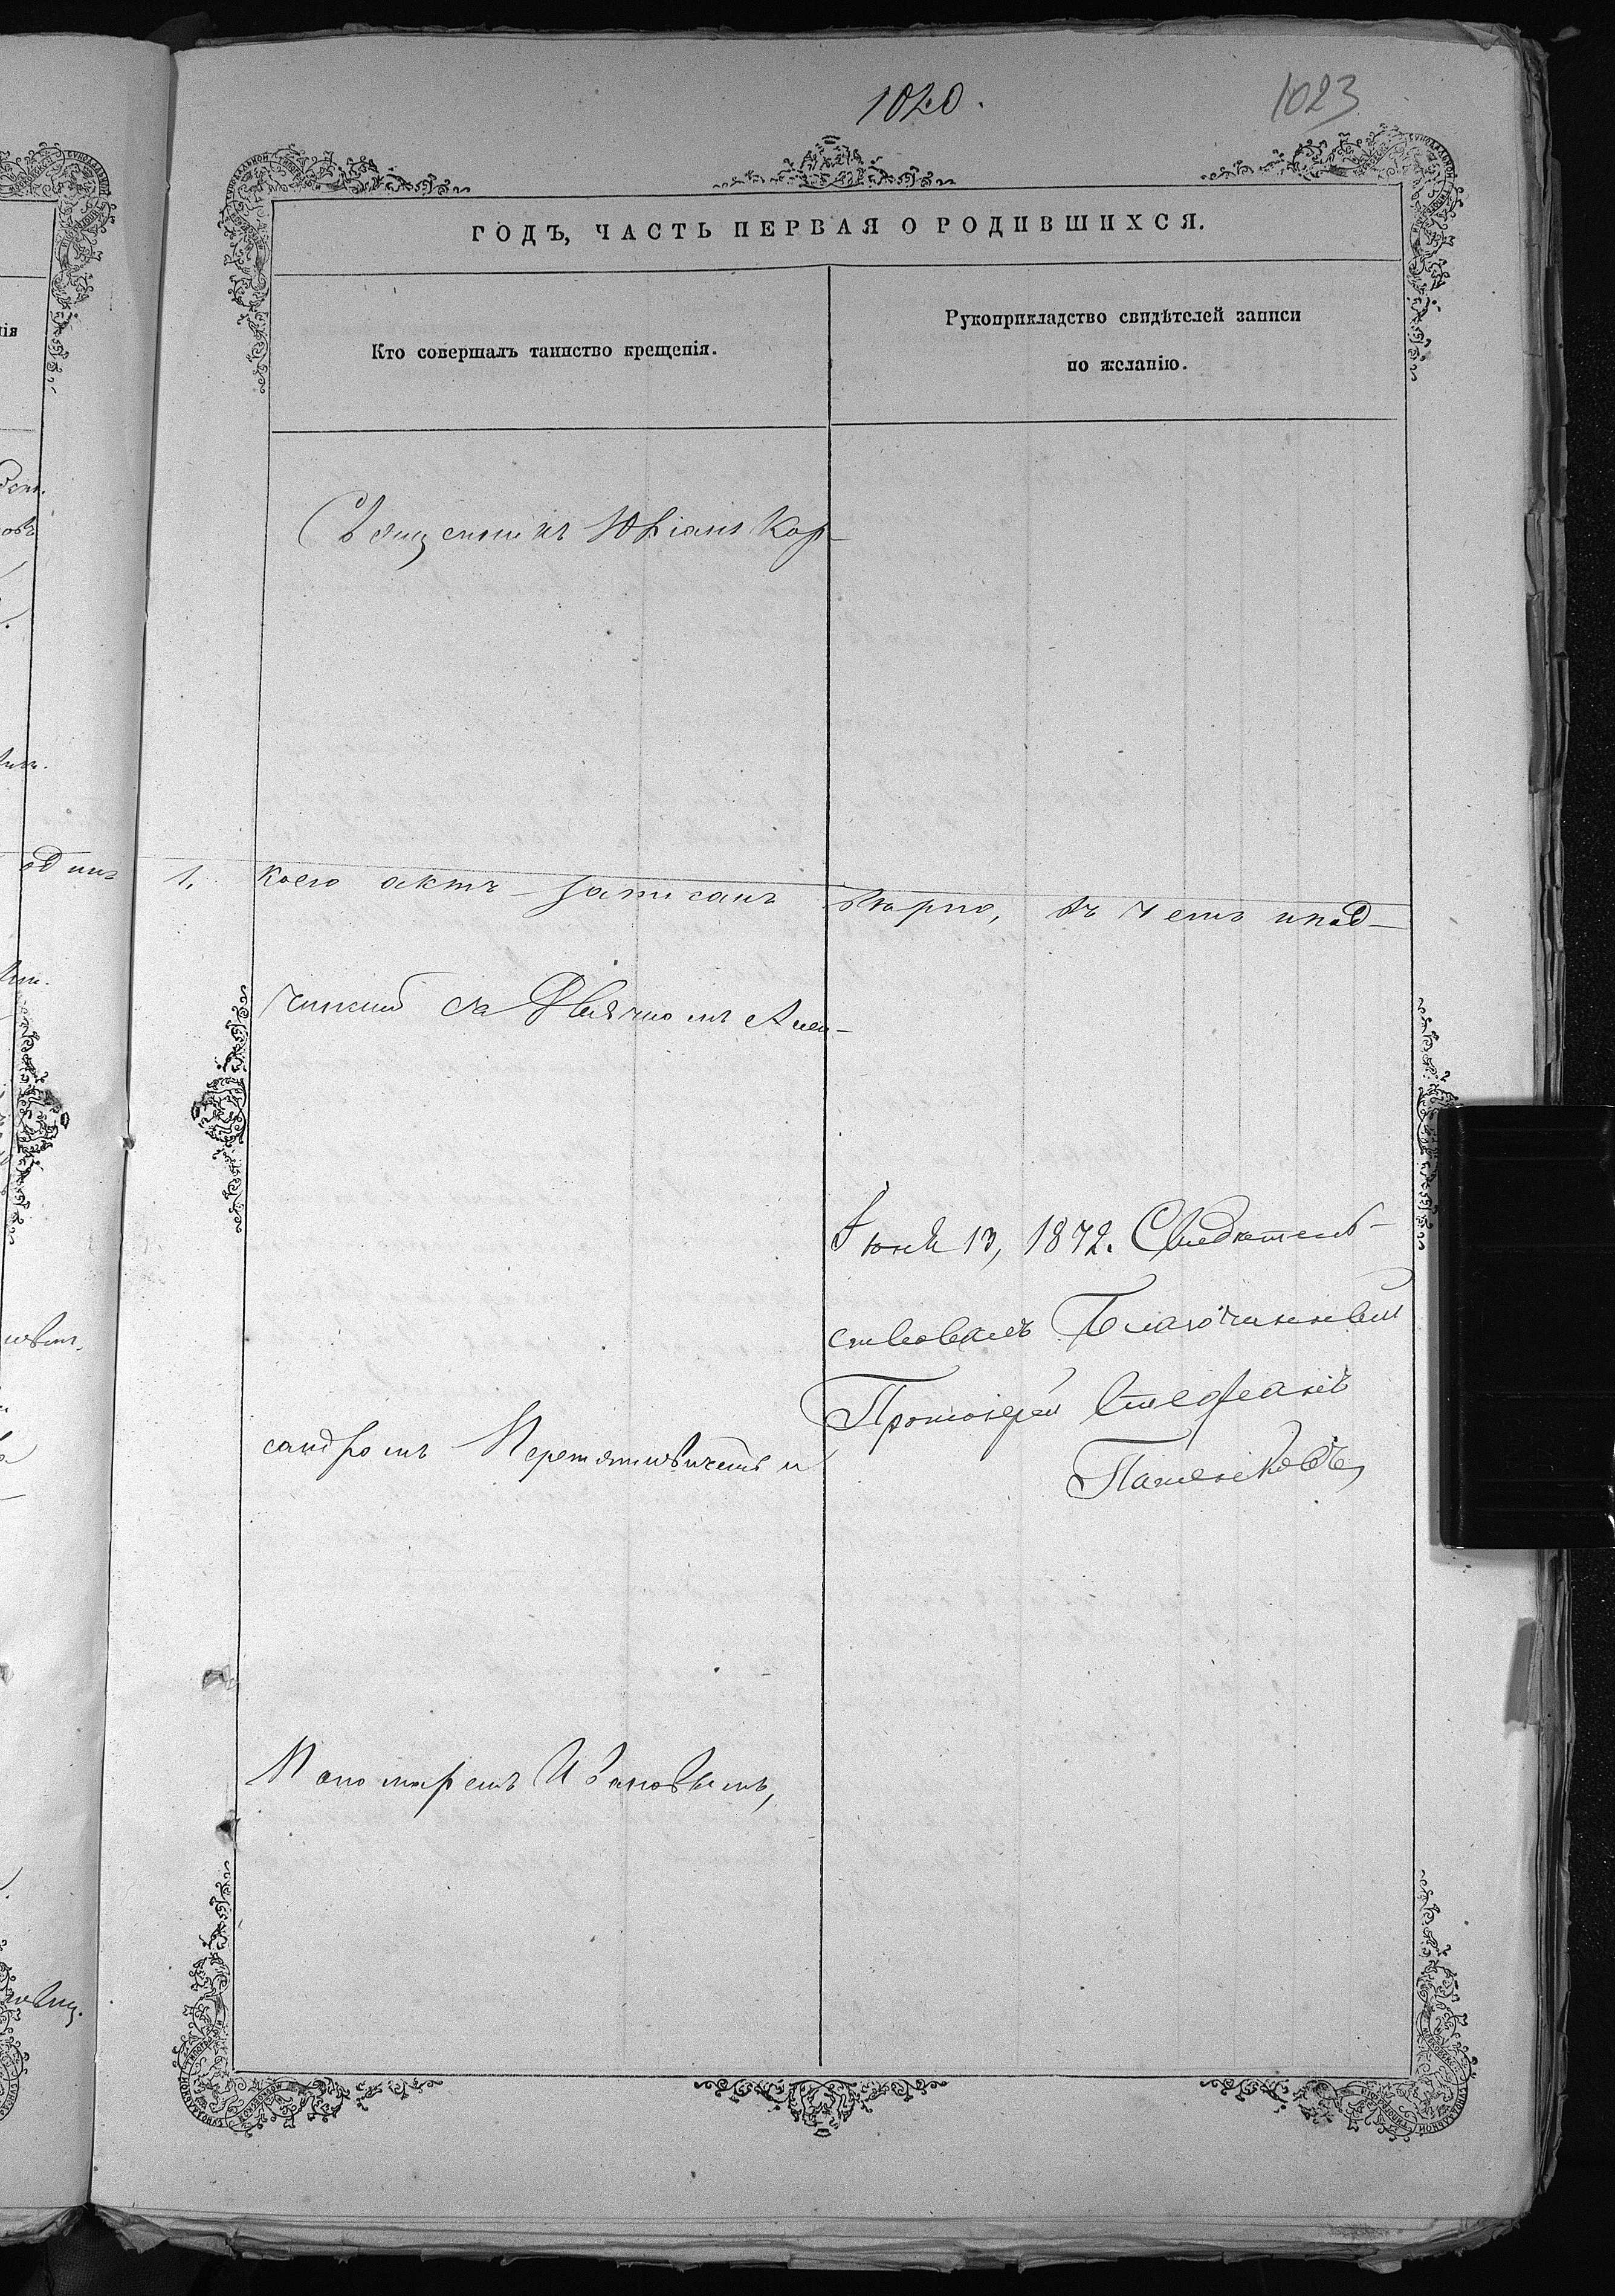 1020.
1023
ГОДЪ, ЧАСТЬ ПЕРВАЯ О РОДИВШИХСЯ.
нія
Кто совершалъ таинство крещенія.
Рукоприкладство свидѣтелей записи
по желанію.
Священникъ Юліанъ Кор-
одинъ 1. коего актъ записанъ вѣрно, въ чемъ и под-
чинскій съ Дьячкомъ Алек-
Іюня 13, 1872. Свидѣтель-
ствовалъ Благочинный
Протоіерей Стефанъ
сандромъ и
Пономаремъ Ивановымъ,